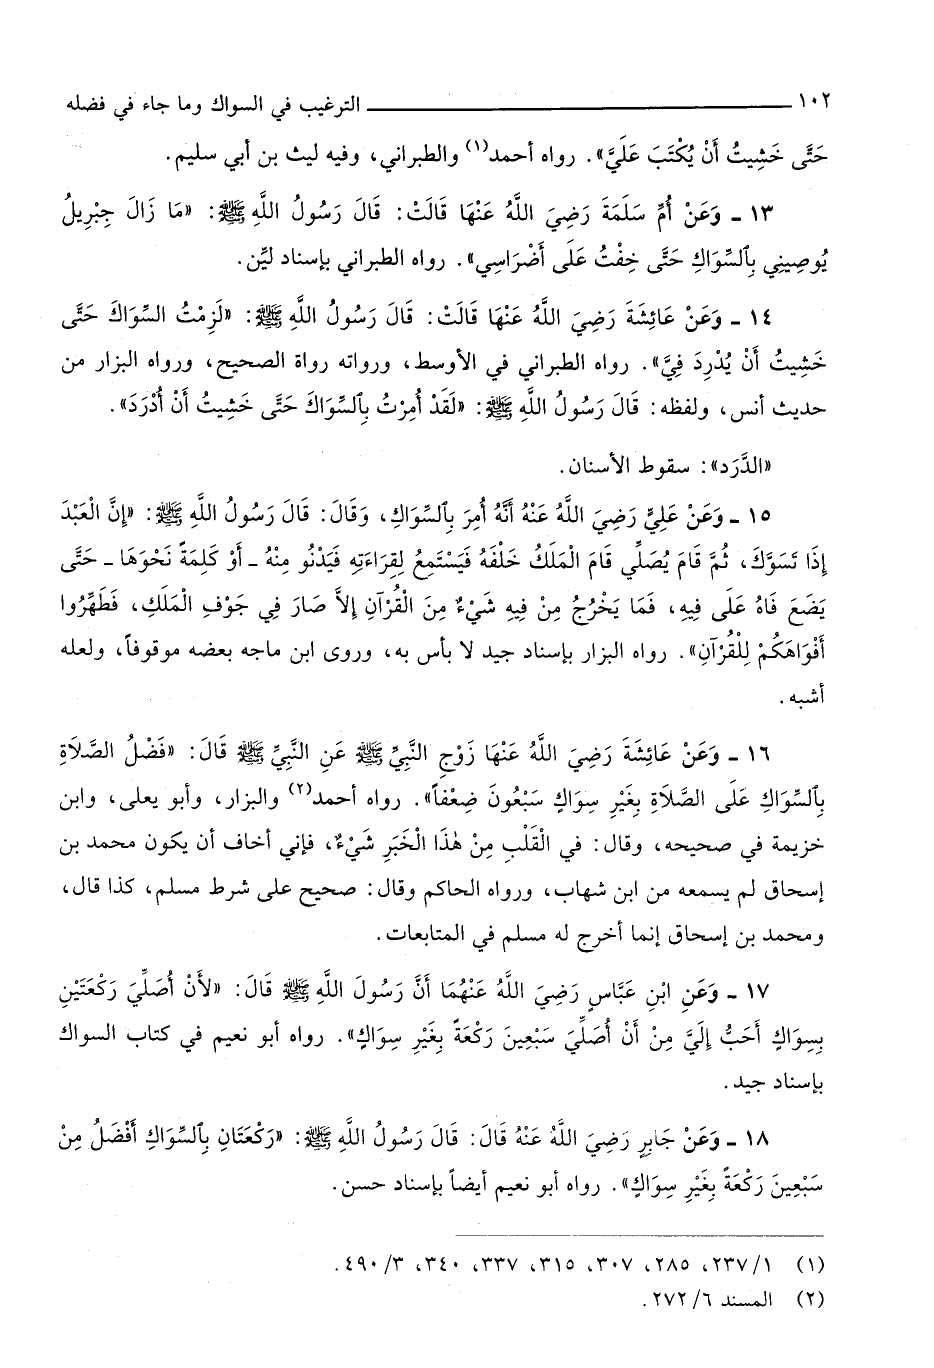 ١٠٢ ــــــــــــــــــــ الترغيب في السواك وما جاء في فضله
حَتَّى خَشِيتُ أَنْ يُكْتَبَ عَلَيَّ». رواه أحمد(١) والطبراني، وفيه ليث بن أبي سليم.
١٣ ـ وَعَنْ أُمِّ سَلَمَةَ رَضِيَ اللَّهُ عَنْهَا قَالَتْ: قَالَ رَسُولُ اللَّهِ ﷺ: «مَا زَالَ جِبْرِيلُ
يُوصِينِي بِٱلسِّوَاكِ حَتَّى خِفْتُ عَلَى أَضْرَاسِي». رواه الطبراني بإسناد ليِّن.
١٤ ـ وَعَنْ عَائِشَةَ رَضِيَ اللَّهُ عَنْهَا قَالَتْ: قَالَ رَسُولُ اللَّهِ ﷺ: «لَزِمْتُ السِّوَاكَ حَتَّى
خَشِيتُ أَنْ يُدْرِدَ فِيَّ». رواه الطبراني في الأوسط، ورواته رواة الصحيح، ورواه البزار من
حديث أنس، ولفظه: قَالَ رَسُولُ اللَّهِ ﷺ: «لَقَدْ أُمِرْتُ بِٱلسِّوَاكَ حَتَّى خَشِيتُ أَنْ أَدْرَدَ».
«الدَّرَد»: سقوط الأسنان.
١٥ ـ وَعَنْ عَلِيٍّ رَضِيَ اللَّهُ عَنْهُ أَنَّهُ أُمِرَ بِٱلسِّوَاكِ، وَقَالَ: قَالَ رَسُولُ اللَّهِ ﷺ: «إِنَّ الْعَبْدَ
إِذَا تَسَوَّكَ، ثُمَّ قَامَ يُصَلِّي قَامَ الْمَلَكُ خَلْفَهُ فَيَسْتَمِعُ لِقِرَاءَتِهِ فَيَدْنُو مِنْهُ ـ أَوْ كَلِمَةً نَحْوَهَا ـ حَتَّى
يَضَعَ فَاهُ عَلَى فِيهِ، فَمَا يَخْرُجُ مِنْ فِيهِ شَيْءٌ مِنَ الْقُرْآنِ إِلاَّ صَارَ فِي جَوْفِ الْمَلَكِ، فَطَهِّرُوا
أَفْوَاهَكُمْ لِلْقُرْآنِ». رواه البزار بإسناد جيد لا بأس به، وروى ابن ماجه بعضه موقوفاً، ولعله
أشبه.
١٦ ـ وَعَنْ عَائِشَةَ رَضِيَ اللَّهُ عَنْهَا زَوْجِ النَّبِيِّ ﷺ عَنِ النَّبِيِّ ﷺ قَالَ: «فَضْلُ الصَّلَاةِ
بِٱلسِّوَاكِ عَلَى الصَّلَاةِ بِغَيْرِ سِوَاكٍ سَبْعُونَ ضِعْفاً». رواه أحمد(٢) والبزار، وأبو يعلى، وابن
خزيمة في صحيحه، وقال: في الْقَلْبِ مِنْ هٰذَا الْخَبَرِ شَيْءٌ، فإني أخاف أن يكون محمد بن
إسحاق لم يسمعه من ابن شهاب، ورواه الحاكم وقال: صحيح على شرط مسلم، كذا قال،
ومحمد بن إسحاق إنما أخرج له مسلم في المتابعات.
١٧ ـ وَعَنِ ابْنِ عَبَّاسٍ رَضِيَ اللَّهُ عَنْهُمَا أَنَّ رَسُولَ اللَّهِ ﷺ قَالَ: «لأَنْ أُصَلِّيَ رَكْعَتَيْنِ
بِسِوَاكٍ أَحَبُّ إِلَيَّ مِنْ أَنْ أُصَلِّيَ سَبْعِينَ رَكْعَةً بِغَيْرِ سِوَاكٍ». رواه أبو نعيم في كتاب السواك
بإسناد جيد.
١٨ ـ وَعَنْ جَابِرٍ رَضِيَ اللَّهُ عَنْهُ قَالَ: قَالَ رَسُولُ اللَّهِ ﷺ: «رَكْعَتَانِ بِٱلسِّوَاكِ أَفْضَلُ مِنْ
سَبْعِينَ رَكْعَةً بِغَيْرِ سِوَاكٍ». رواه أبو نعيم أيضاً بإسناد حسن.
(١) ١/ ٢٣٧، ٢٨٥، ٣٠٧، ٣١٥، ٣٣٧، ٣٤٠، ٣/ ٤٩٠.
(٢) المسند ٦/ ٢٧٢.